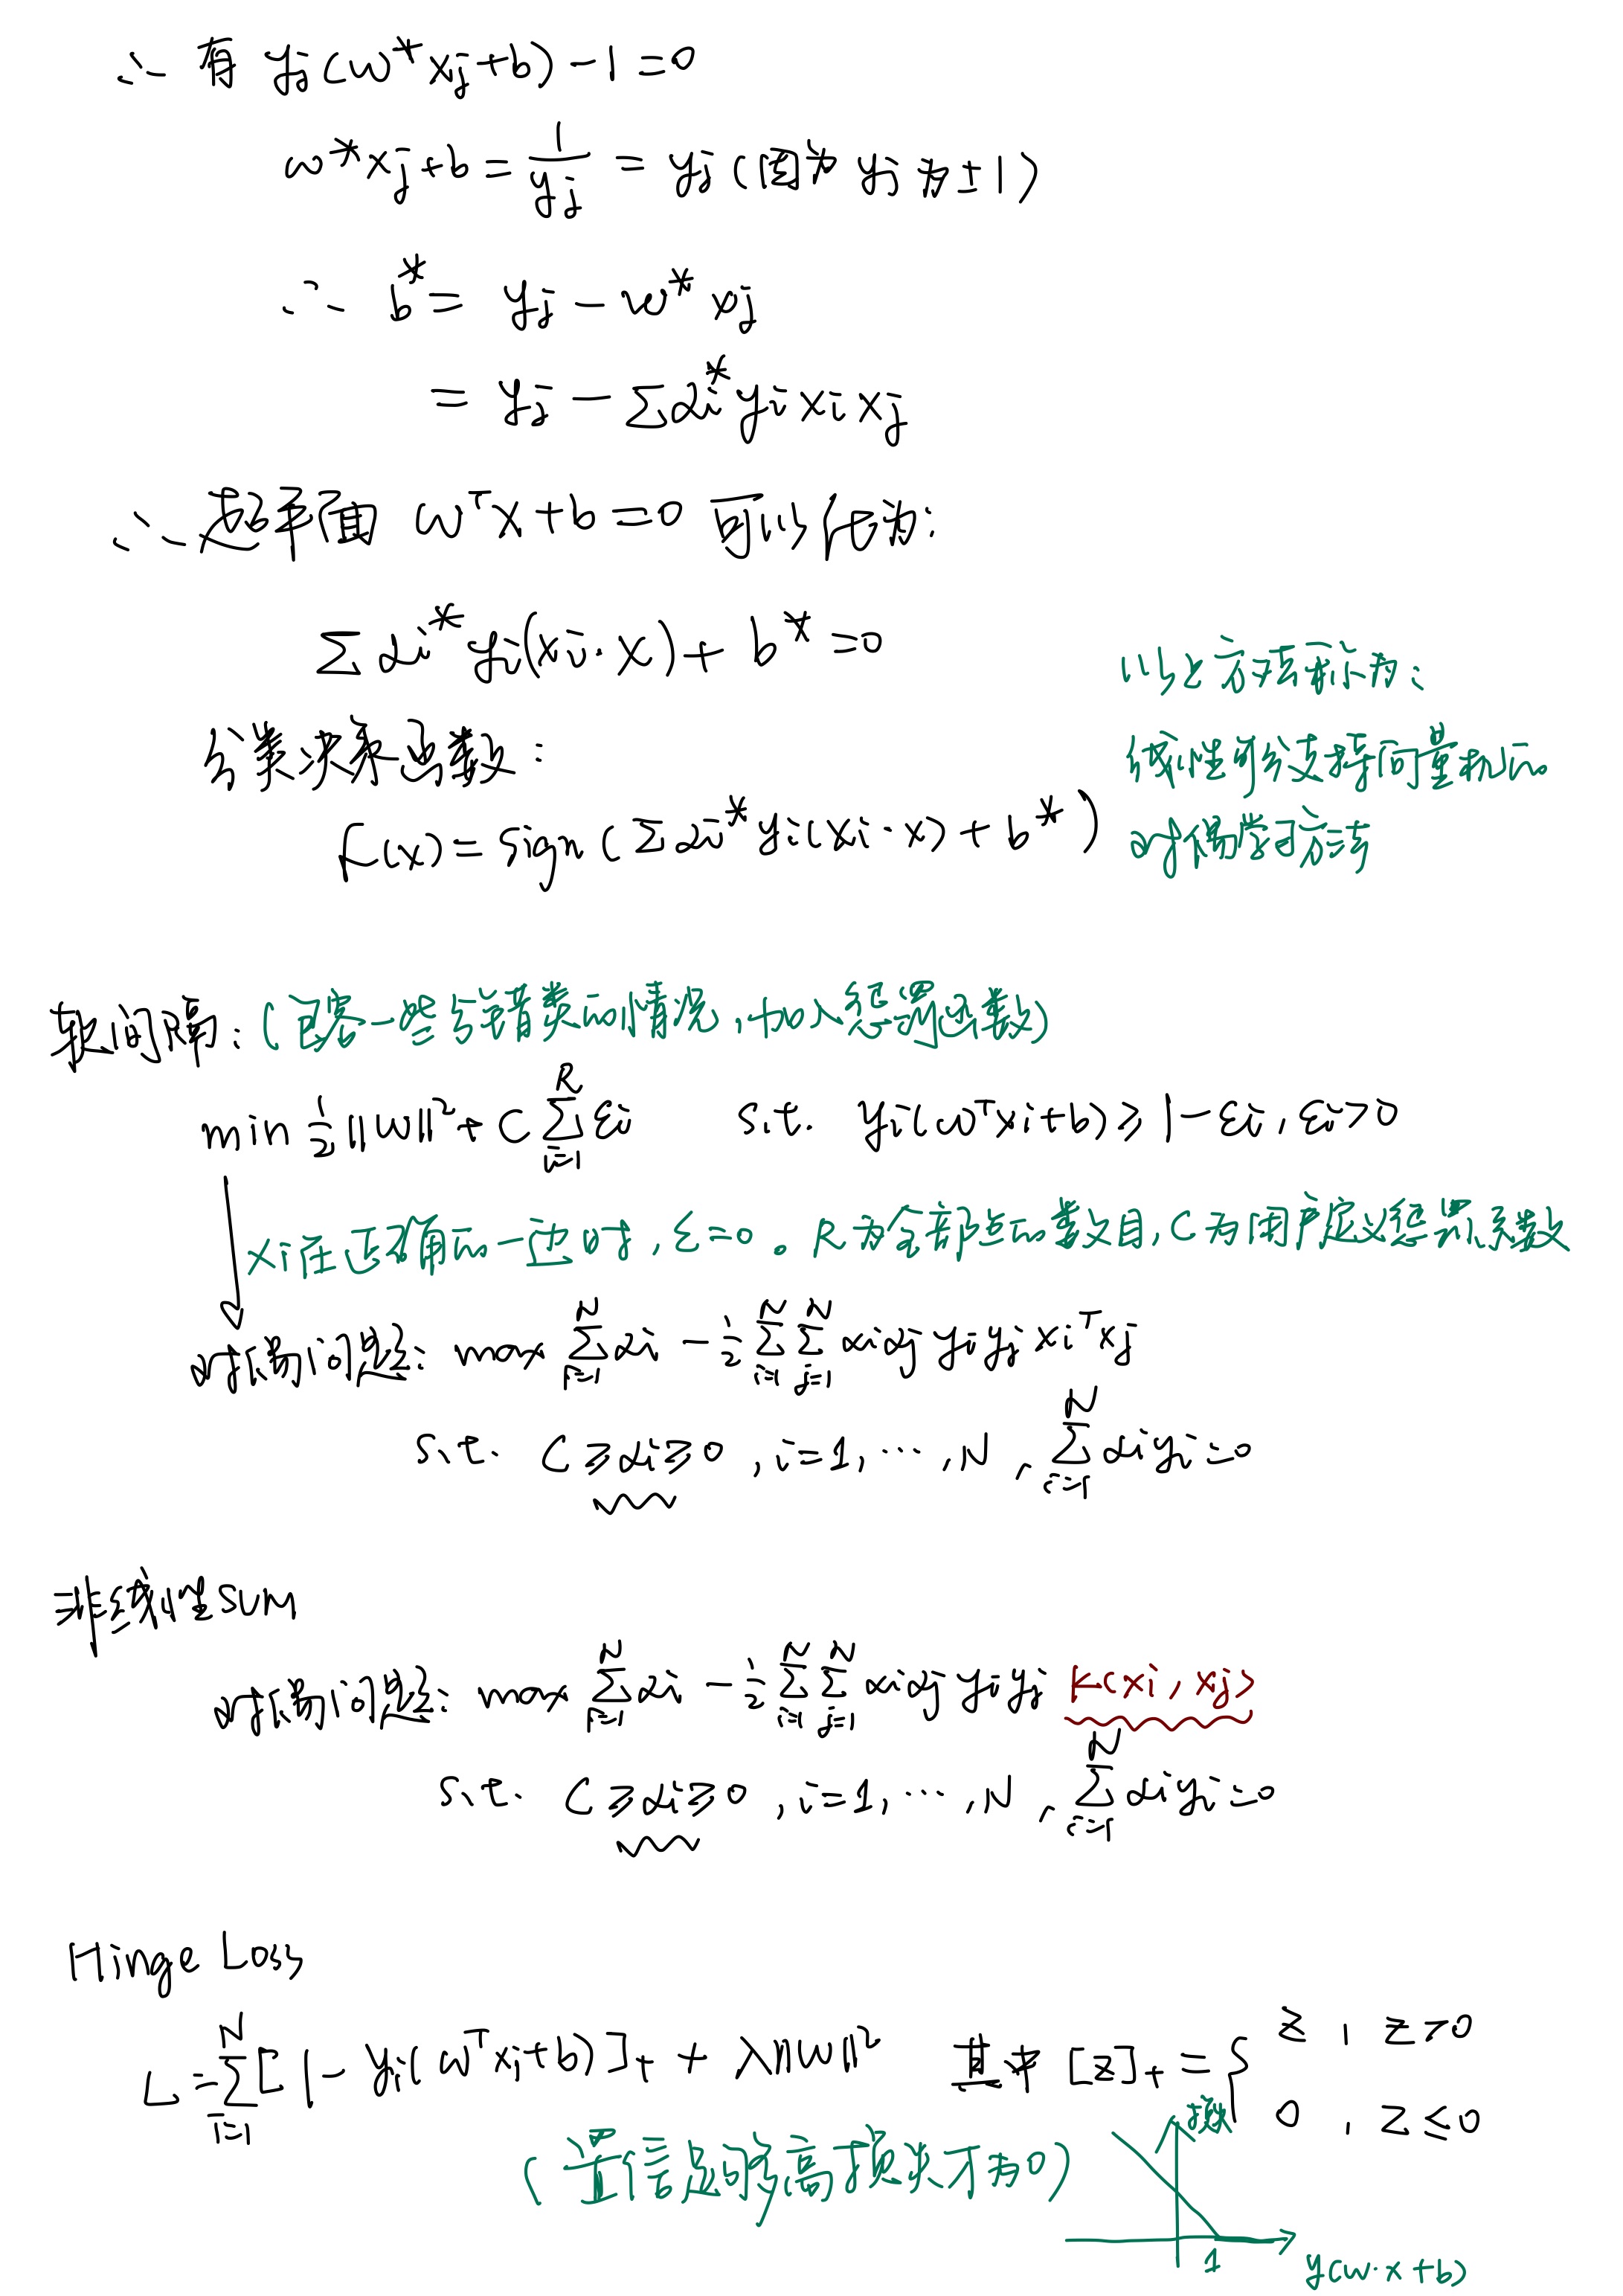 ∴ 有 yj(w*xj+b)-1=0
w*xj+b = 1/yj = yj (因为 yj 为±1)
∴ b* = yj - w*xj
= yj - Σαi*yixixj
∴ 超平面 wᵀx+b=0 可以化为:
Σαi*yi(xi·x)+b*=0
分类决策函数:
f(x)=sign(Σαi*yi(xi·x)+b*)
以上方法称为:
线性可分支持向量机的
对偶学习方法
软间隔:(包容一些分错类的情况,加入惩罚函数)
min ½||w||²+C Σ(i=1..R) εi s.t. yi(wᵀxi+b)≥1-εi, εi>0
xi在正确的一边时,ε=0。R为全部点的数目,C为用户定义惩罚系数
对偶问题: max Σ(i=1..N) αi - ½ Σ(i=1..N) Σ(j=1..N) αiαjyiyjxiᵀxj
s.t. C≥αi≥0, i=1,…,N, Σ(i=1..N) αiyi=0
非线性SVM
对偶问题: max Σ(i=1..N) αi - ½ Σ(i=1..N) Σ(j=1..N) αiαjyiyj K(xi,xj)
s.t. C≥αi≥0, i=1,…,N, Σ(i=1..N) αiyi=0
Hinge Loss
L=Σ(i=1..N) [1-yi(wᵀxi+b)]₊ + λ||w||² 其中 [z]₊ = { z, z>0
0, z≤0
(置信足够高损失才为0)
损失
1
y(w·x+b)